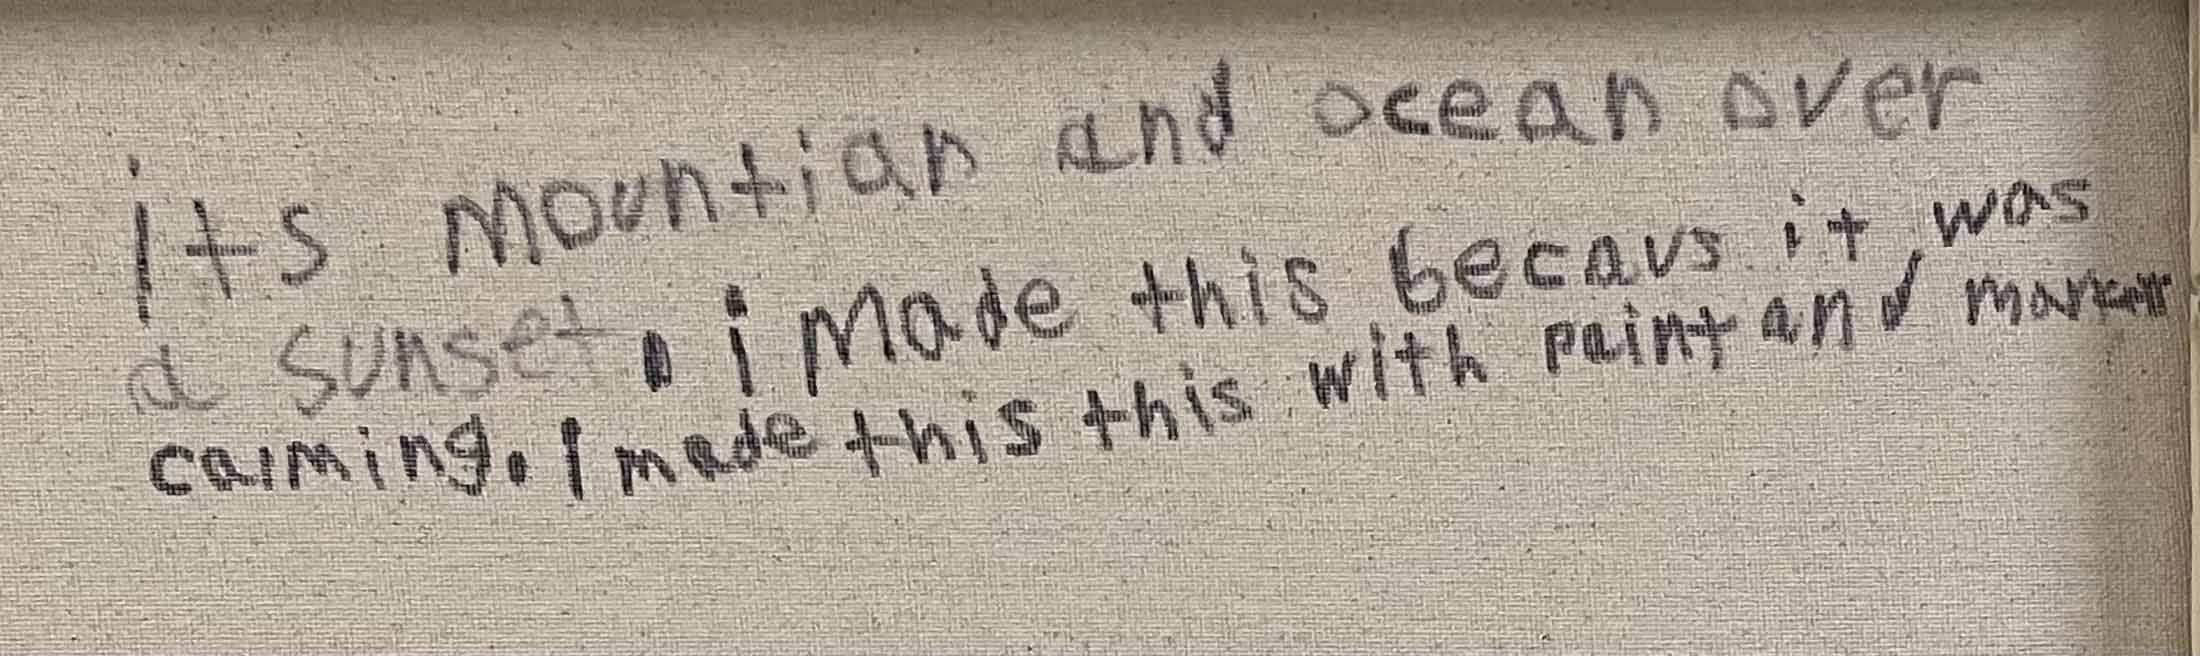 its mountian and ocean over
a sunset. i made this becaus it was
calming. I made this this with paint and marker